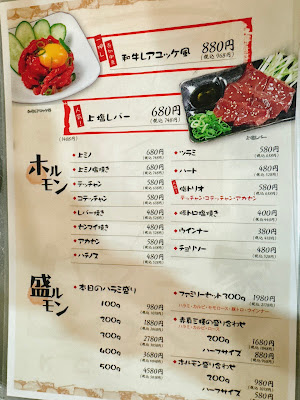 一押し
和牛レアユッケ風 880円
(税込 968円)
人気!
上塩レバー 680円
(税込 748円)
上塩レバー
ホルモン
・上ミノ 680円
(税込 748円)
・上ミノ塩焼き 680円
(税込 748円)
・テッチャン 580円
(税込 638円)
・コテッチャン 580円
(税込 638円)
・レバー焼き 480円
(税込 528円)
・センマイ焼き 480円
(税込 528円)
・アカセン 580円
(税込 638円)
・ハチノス
・ツラミ 580円
(税込 638円)
・ハート 480円
(税込 528円)
・塩トリオ 580円
(税込 638円)
テッチャン・コテッチャン・アカセン
・豚トロ塩焼き 400円
(税込 440円)
・ウインナー 380円
・チョリソー 480円
(税込 528円)
盛ルモン
・本日のハラミ盛り
100g 980円
200g 1880円
300g 2780円
400g 3680円
500g 4580円
・ファミリーセット300g 1980円
・赤身三種の盛り合わせ
200g 1680円
ハーフサイズ 880円
・ホルモン盛り合わせ
200g 980円
ハーフサイズ